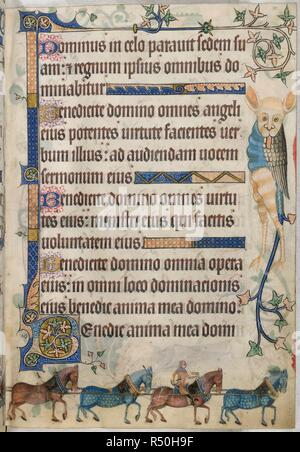 Dominus in celo parauit sedem su
am: & regnum ipsius omnibus do
minabitur
Benedicite domino omnes angeli
eius potentes uirtute facientes uer
bum illius: ad audiendam uocem
sermonum eius
Benedicite domino omnes uirtu
tes eius: ministri eius qui facitis
uoluntatem eius
Benedicite domino omnia opera
eius: in omni loco dominacionis
eius benedic anima mea domino:
Benedic anima mea domi
alamy
Image ID: R50H9F
www.alamy.com